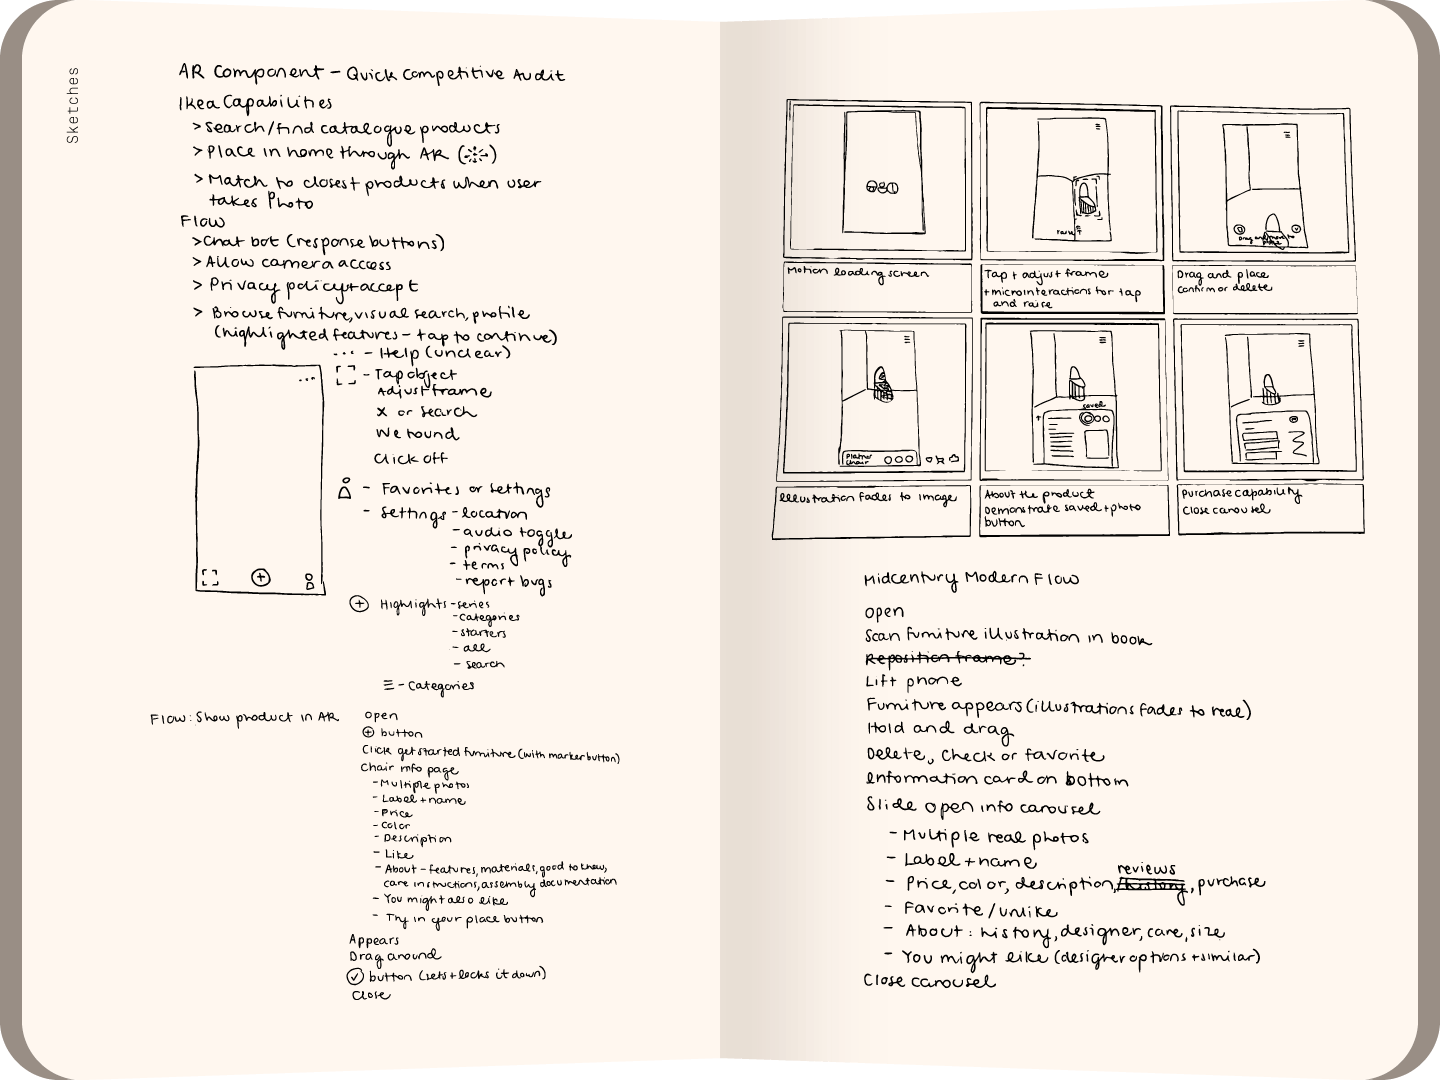 Sketches
AR Component - Quick Competitive Audit
Ikea Capabilities
> Search/find catalogue products
> Place in home through AR ( )
> Match to closest products when user
takes Photo
Flow
> Chat bot (response buttons)
> Allow camera access
> Privacy policy + accept
> Browse furniture, visual search, profile
(highlighted features - tap to continue)
... - Help (unclear)
- Tap object
Adjust frame
X or search
We found
Click off
- Favorites or settings
- Settings - location
- audio toggle
- privacy policy
- terms
- report bugs
+ Highlights - series
- categories
- starters
- all
- search
☰ - Categories
Flow: Show product in AR
open
+ button
Click get started furniture (with marker button)
Chair info page
- Multiple photos
- Label + name
- Price
- Color
- Description
- Like
- About - features, materials, good to know,
care instructions, assembly documentation
- You might also like
- Try in your place button
Appears
Drag around
✓ button (sets + locks it down)
Close
raise ↑
Drag and move to
place
Motion loading screen
Tap + adjust frame
+ microinteractions for tap
and raise
Drag and place
confirm or delete
Platner
Chair
saved
Illustration fades to image
About the product
Demonstrate saved + photo
button
Purchase capability
Close carousel
Midcentury Modern Flow
open
Scan furniture illustration in book
Reposition frame?
Lift phone
Furniture appears (illustrations fades to real)
Hold and drag
Delete, Check or favorite
Information card on bottom
Slide open info carousel
- Multiple real photos
- Label + name
reviews
- Price, color, description, history, purchase
- Favorite/unlike
- About: history, designer, care, size
- You might like (designer options + similar)
Close carousel